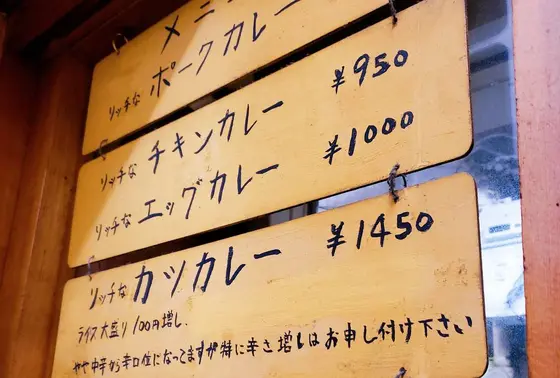 メニ
リッチな ポークカレー
リッチな チキンカレー ¥950
リッチな エッグカレー ¥1000
リッチな カツカレー ¥1450
ライス大盛り100円増し.
やや中辛から辛口位になってますが特に辛さ増しはお申し付け下さい